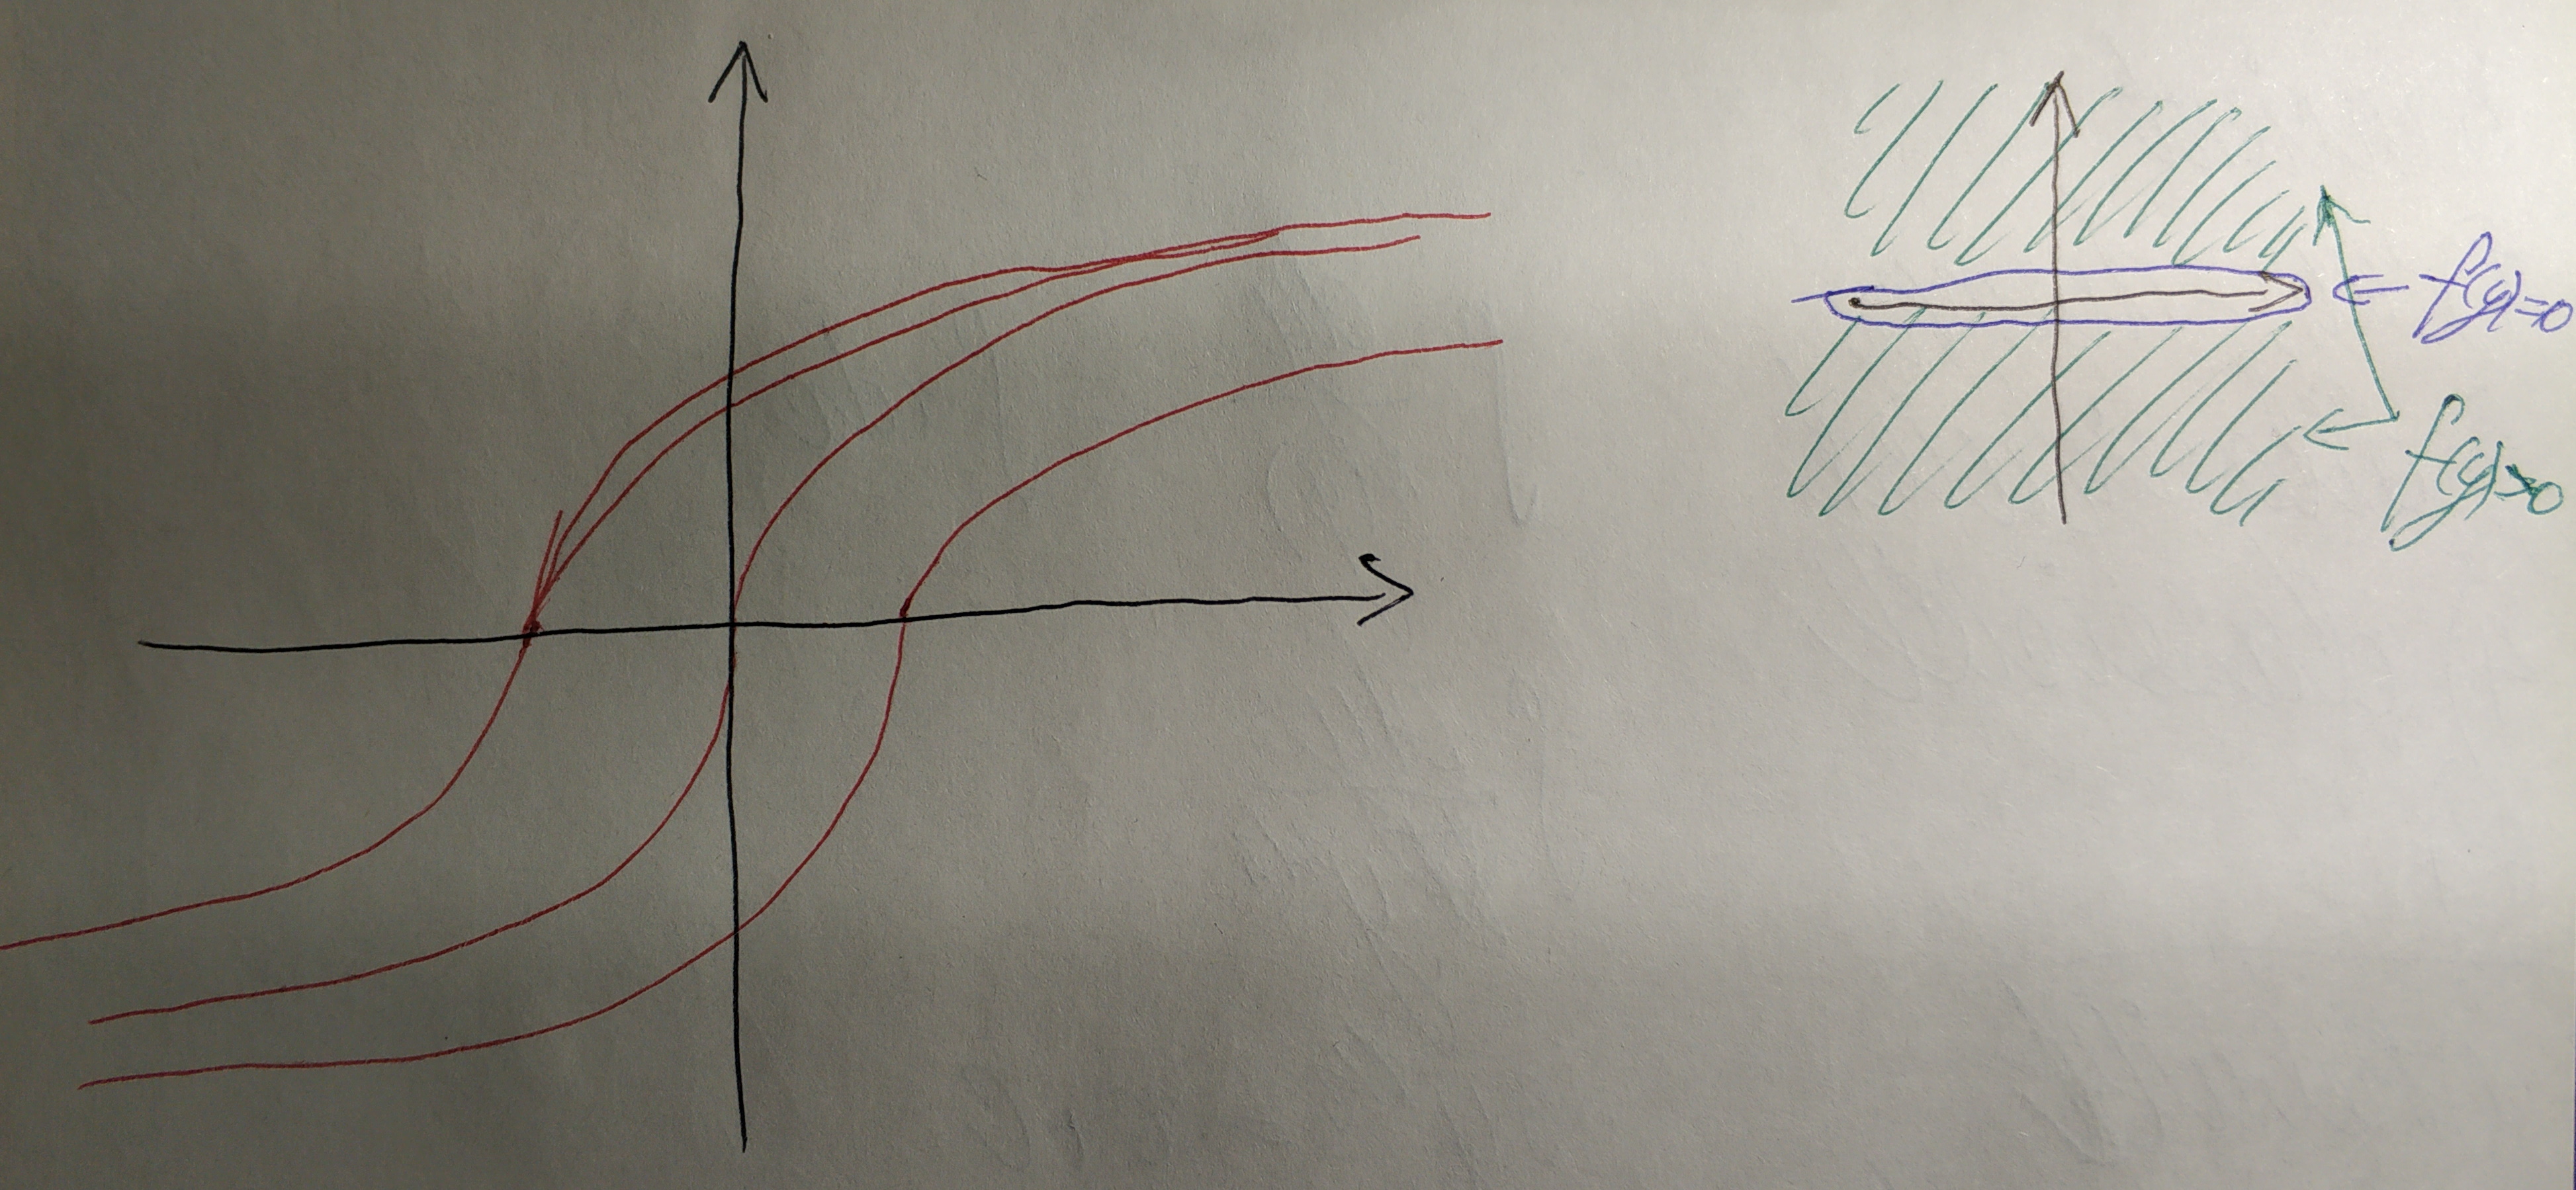 f(y)=0
f(y)>0